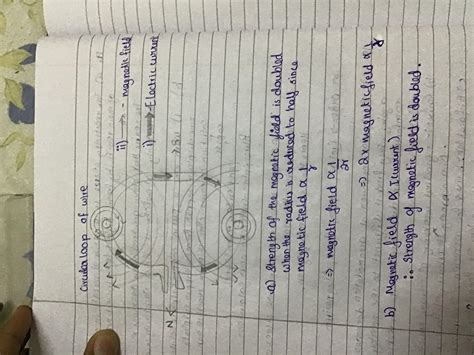 Circular loop of wire
ii) → - magnetic field
i) → - Electric current
N
a) Strength of the magnetic field is doubled
when the radius is reduced to half since
magnetic field α 1/r
⇒ magnetic field α 1/2r
⇒ 2x magnetic field α 1/r
b) Magnetic field α I (current)
∴ Strength of magnetic field is doubled.